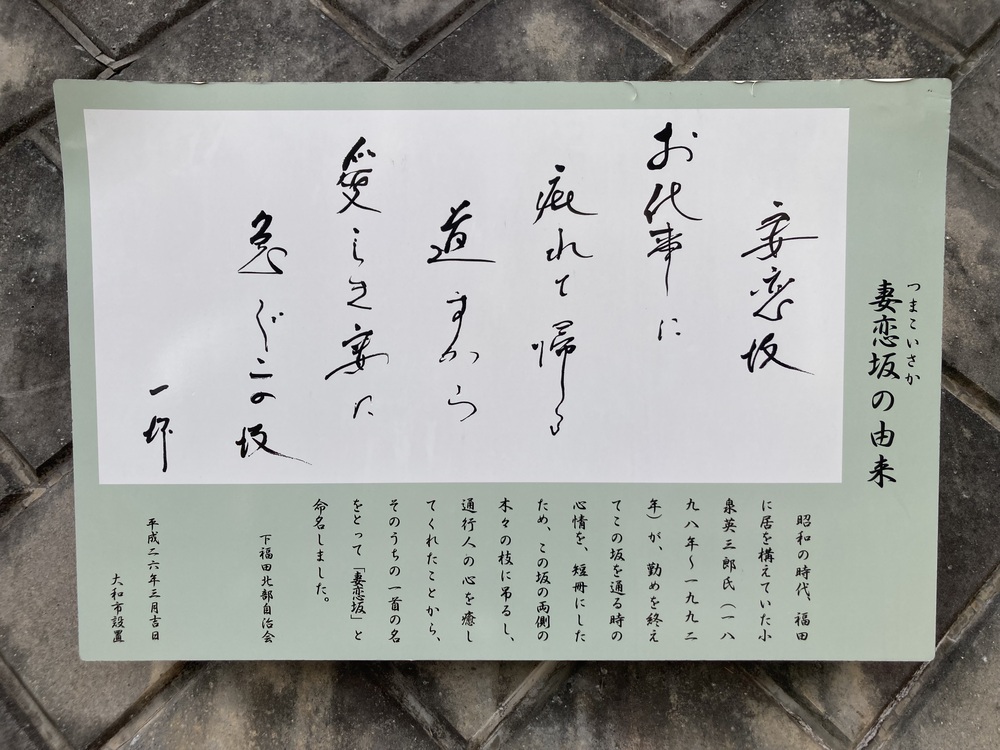 つまこいさか
妻恋坂の由来
妻恋坂
お仕事に
疲れて帰る
道すから
愛らき妻に
急ぐこの坂
昭和の時代、福田
に居を構えていた小
泉英三郎氏(一八
九八年~一九九二
年)が、勤めを終え
てこの坂を通る時の
心情を、短冊にした
ため、この坂の両側の
木々の枝に吊るし、
通行人の心を癒し
てくれたことから、
そのうちの一首の名
をとって「妻恋坂」と
命名しました。
下福田北部自治会
平成二六年三月吉日
大和市設置